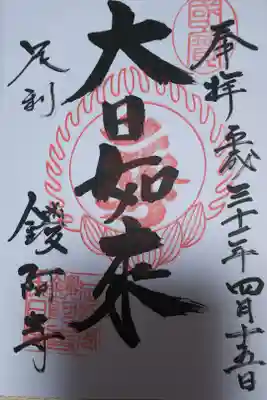 奉拝 平成三十一年四月十五日
國寶
大日如来
足利
鑁阿寺